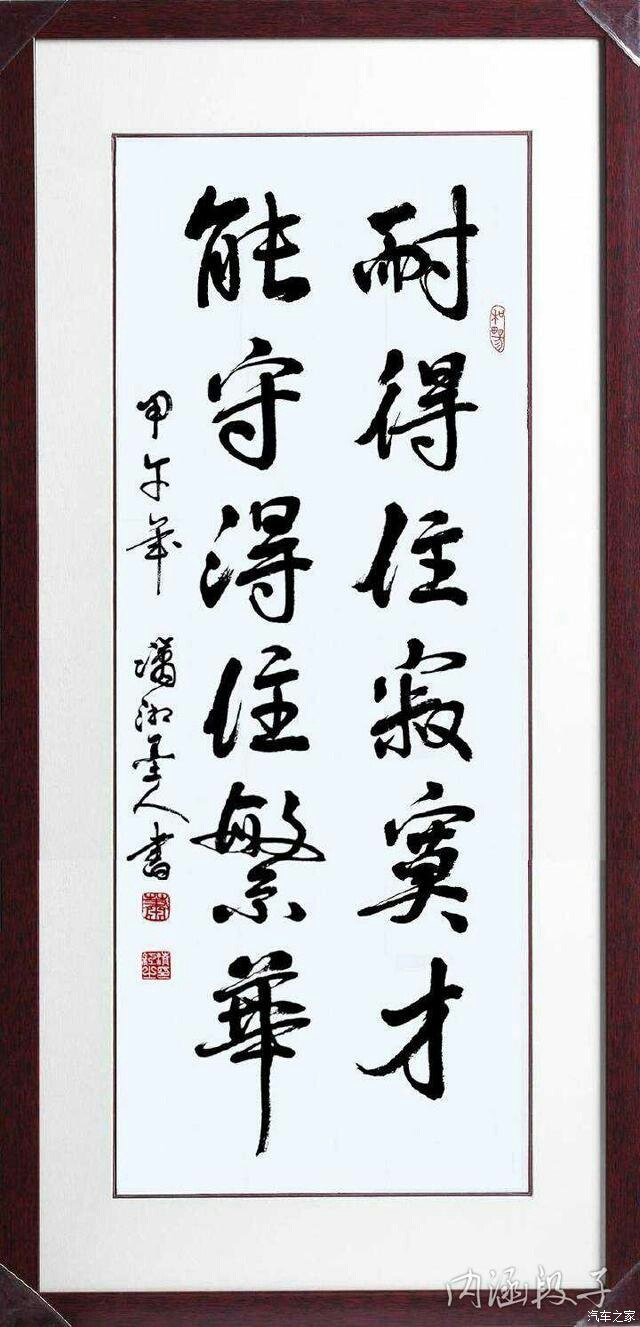 耐得住寂寞才
能守得住繁華
甲午年 瀟湘墨人書
和暢
内涵段子
汽车之家